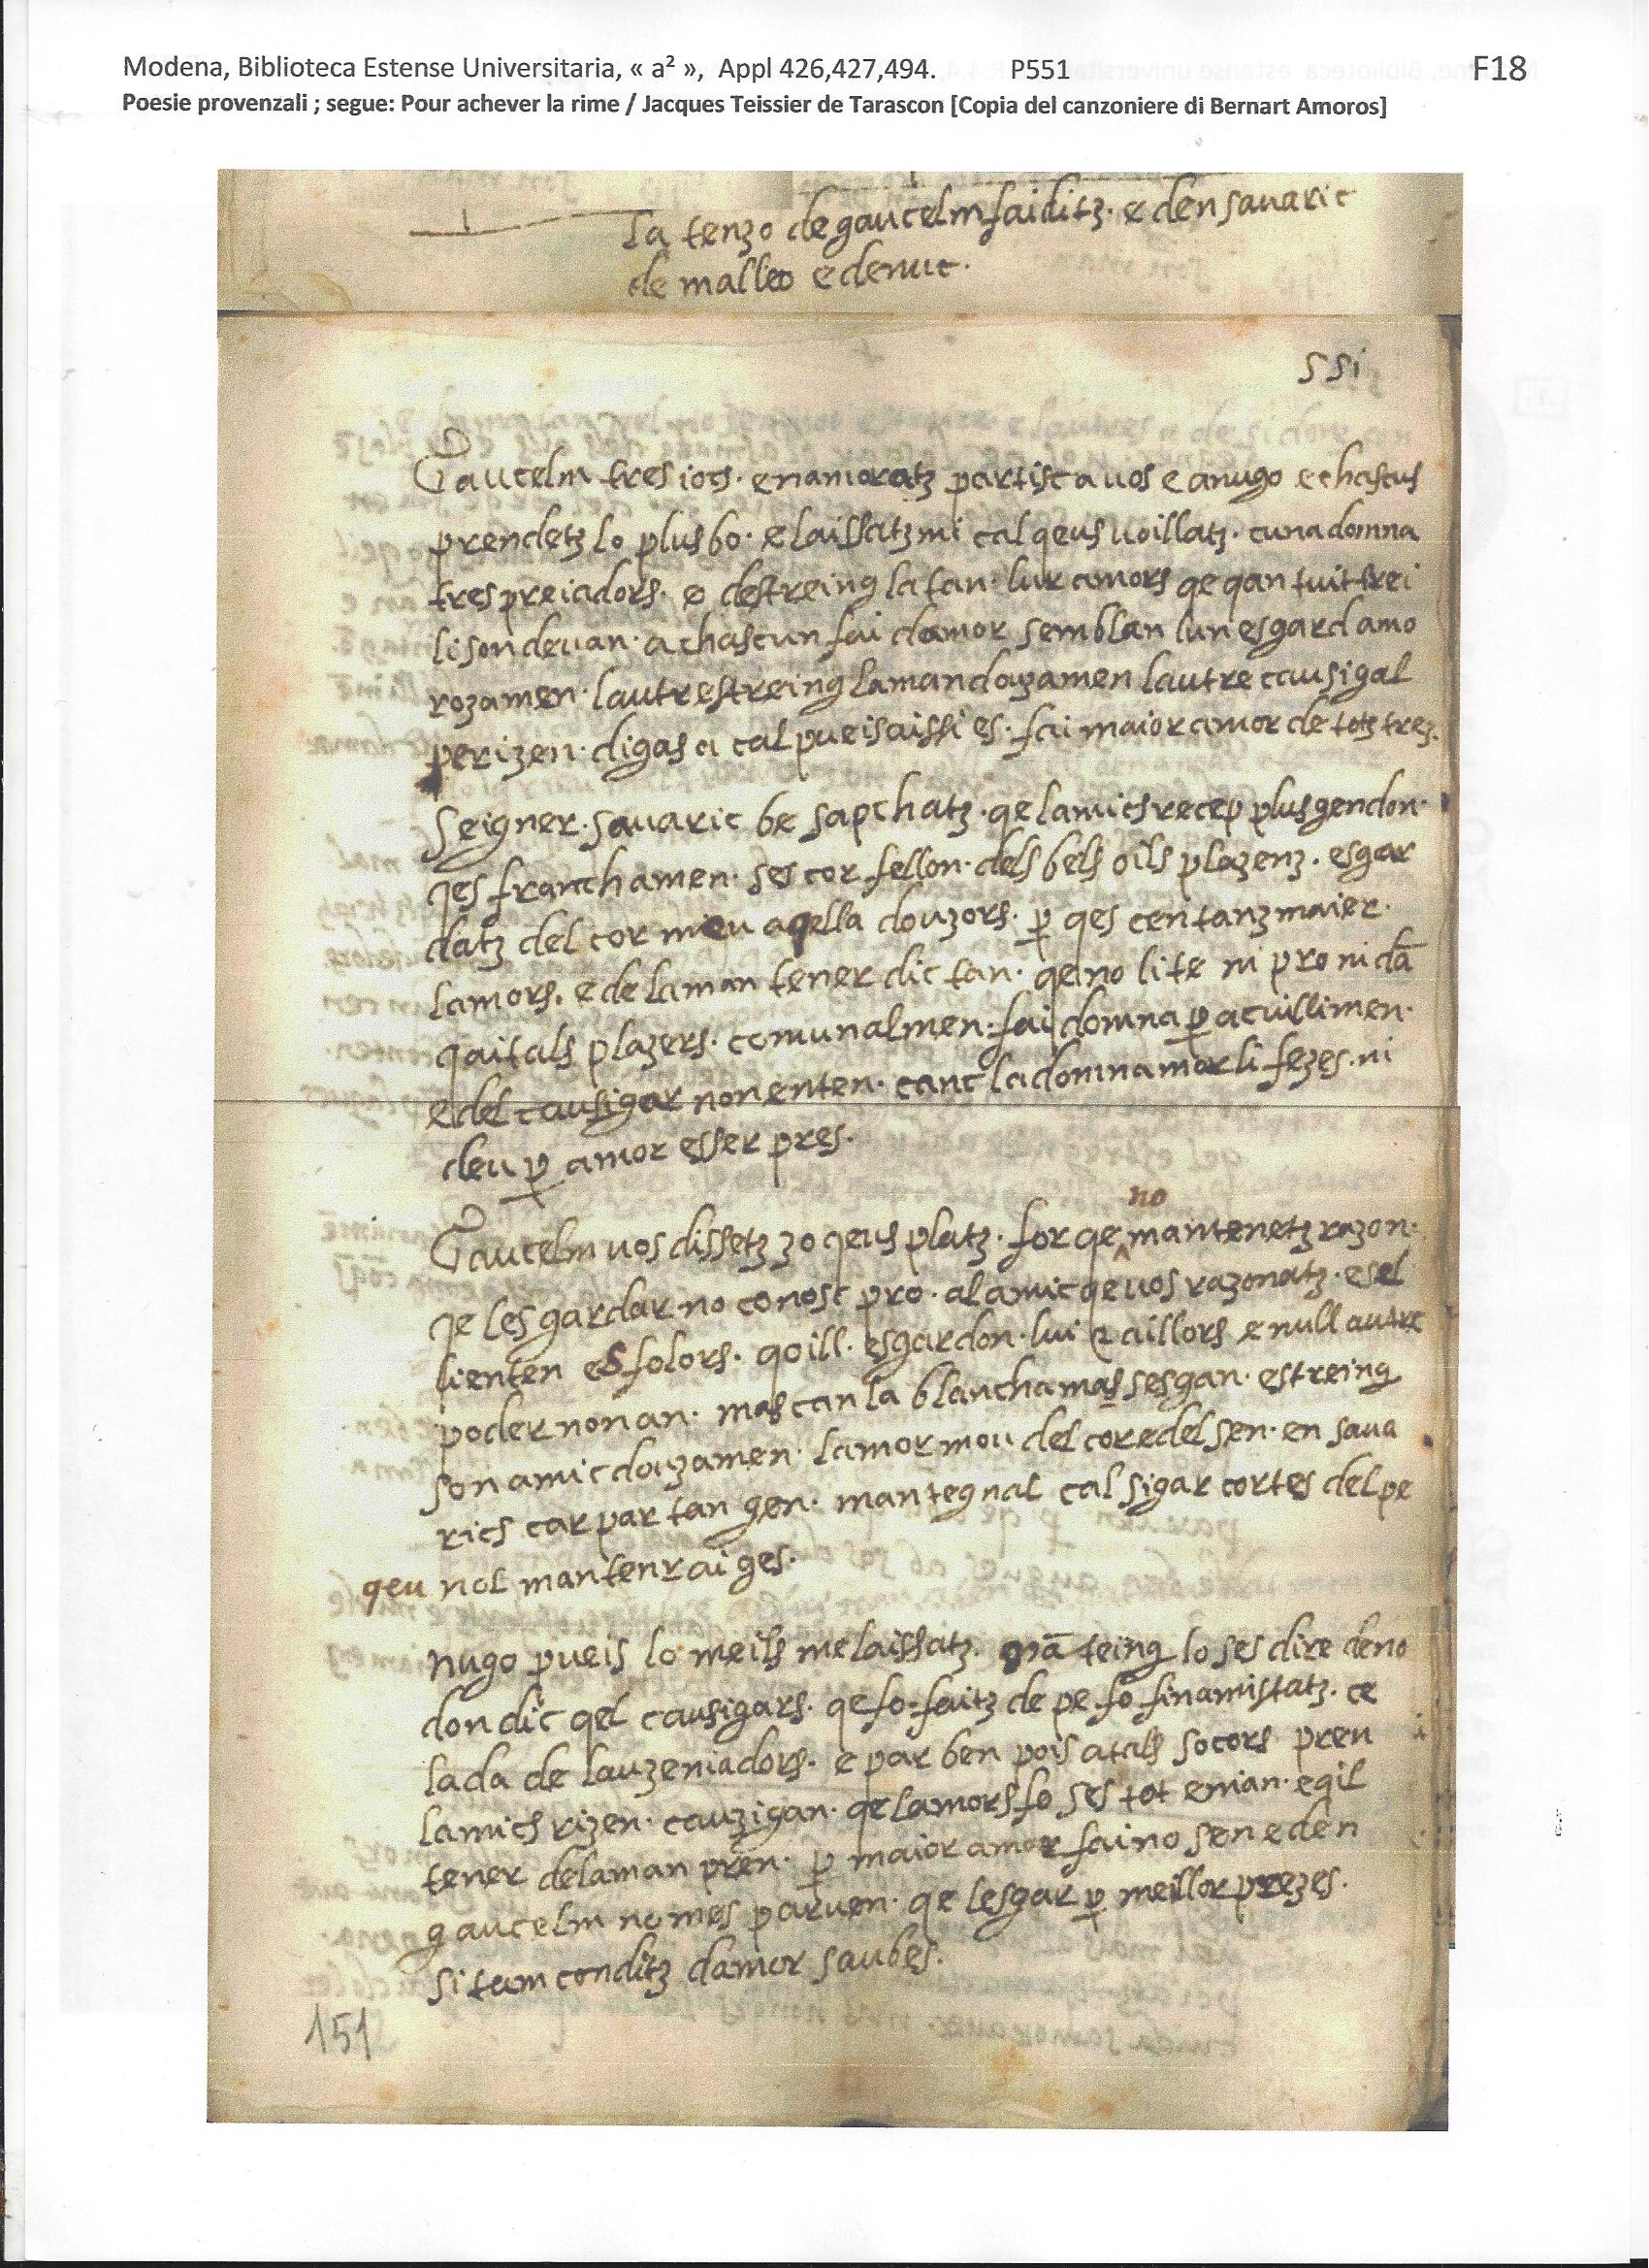 Modena, Biblioteca Estense Universitaria, « a² », Appl 426,427,494. P551 F18
Poesie provenzali ; segue: Pour achever la rime / Jacques Teissier de Tarascon [Copia del canzoniere di Bernart Amoros]
la tenzo de gaucelm faiditz. e den savaric
de malleo e denuc.
551
Gaucelm tres iocs. enamoratz partisc a uos e anugo e chascus
prendetz lo plus bo. e laissatz mi cal qeus uoillatz. cuna domna
tres preiadors. e destreing la tan. lur amors qe qan tuit trei
li son deuan. a chascun fai damor semblan lun esgard amo
rozamen. lautrestreing la man douzamen lautre causigal
perizen. digas a cal pueis aissi es. fai maior amor de totz trez.
Seigner. sauaric be sapchatz. qe lamics recep plus gen don.
qes franchamen. ses cor fellon. dels bels oils plazenz. esgar
datz del cor mieu aqella douzors. p̱ qes cen tanz maier.
lamors. e de la man tener dic tan. qe no li te ni pro ni dā
qaitals plazers. comunalmen. fai domna p̱ acuillimen.
e del causigar non enten. canc la domna mor li fezes. ni
deu p̱ amor esser pres.
Gaucelm uos dissetz zo qeus platz. for qe no mantenetz razon.
qe les gardar no conosc pro. al amic qe uos razonatz. e sel
lienten es folors. qoill. esgardon. lui e aillors e null autre
poder non an. mas can la blancha mas ses gan. estreing
son amic douzamen. lamor mou del cor e del sen. en saua
rics car par tan gen. mantegnal cal sigar cortes del pe
qeu nol mantenrai ges.
nugo pueis lo meils me laissatz. mā teing lo ses dire de no
don dic qel causigars. qe fo faitz de pe fo finamistatz. ce
lada de lauzeniadors. e par ben pois atals socors pren
lamics rizen. cauzigan. qe lamors fo ses tot enian. e qil
tener de la man pren. p̱ maior amor fai no sen e den
gaucelm no mes paruen. qe lesgar p̱ meillor prezes.
si tam conditz damor saubes.
151